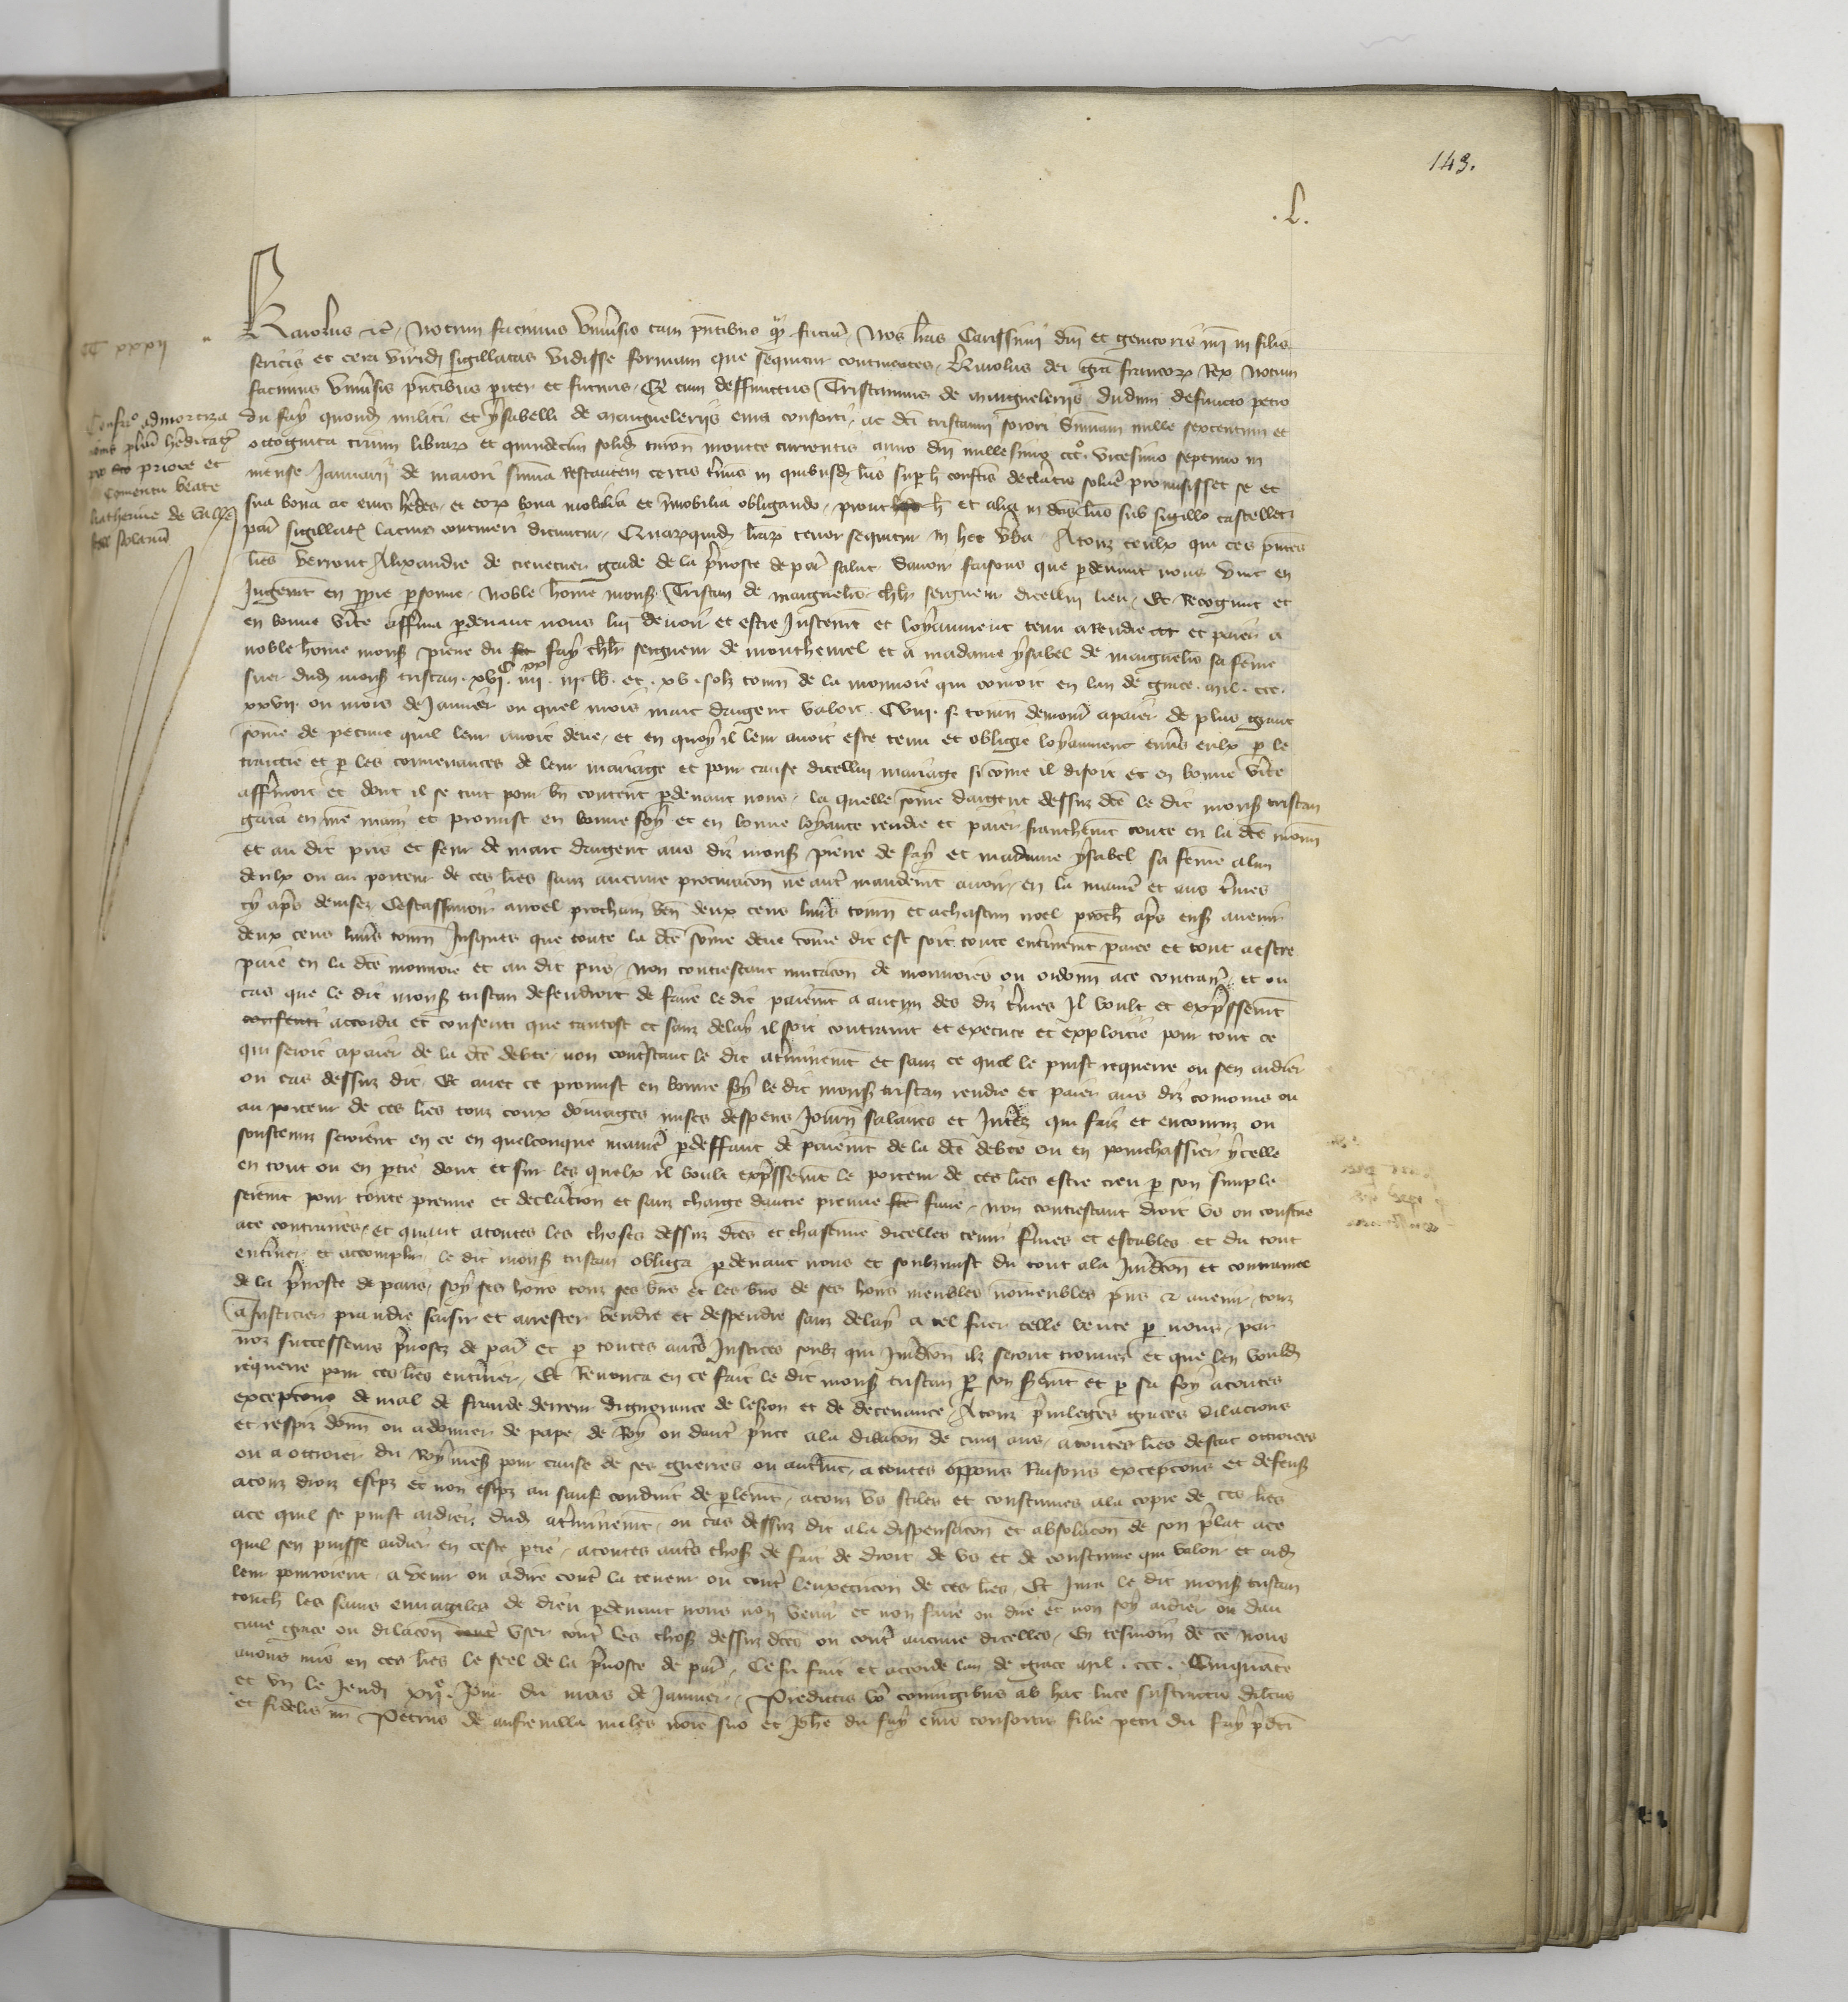 143.
.L.
CCxxxii
Karolus etc. Notum facimus universis tam presentibus quam futuris Nos litteras Carissimi domini et genitoris nostri in filis
sericis et cera viridi sigillatas vidisse formam que sequitur continentes. Karolus dei gracia francorum Rex Notum
facimus universis presentibus pariter et futuris. Quod cum deffunctus Tristannus de maigneleriis dudum defuncto petro
Confirmatio admortiza
du fay quondam militi et ysabelli de maigneleriis eius consorti ac dicti tristanni sorori Summam mille sexcentum et
plurium hereditatum
octoginta trium librarum et quindecim solidorum turon monete currentis anno domini millesimo ccc.º vicesimo septimo in
pro priore et
mense Januarii de maiori summa Restantem certis terminis in quibusdam litteris super hoc confectis declaratis solvere promisisset se et
conventu beate
sua bona ac eius heredes et eorum bona mobilia et immobilia obligando, prout hec et alia in dictis litteris sub sigillo castelleti
katherine de vall
parisius sigillatis lacius contineri dicuntur. Quarumquidem litterarum tenor sequitur in hec verba. A touz ceulx qui ces presentes
scolarium
lettres verront Alixandre de crevecuer garde de la prevoste de paris salut. Savoir faisons que pardevant nous vint en
Jugement en propre personne noble homme mons. Tristan de maignelers chevalier seigneur dicellui lieu. Et Recognut et
en bonne verite afferma pardevant nous lui devoir et estre Justement et loyaument tenu a Rendre et paier a
noble homme mons pierre du fay chevalier seigneur de monchevrel et a madame ysabel de maignelers sa femme
suer dudit mons tristan. xvi.c iiii.xx iii. lb. et. xv. solz tournois de la monnoie qui couroit en lan de grace. mil. ccc.
xxvii. ou mois de Janvier ou quel mois marc dargent valoit. Cviii. s. tournois demourant apaier de plus grant
somme de pecune quil leur avoit deue, et en quoy il leur avoit este tenu et obligie loyaument envers eulx par le
traictie et par les convenances de leur mariage et pour cause dicellui mariage si comme il disoit et en bonne verite
affermoit et dont il se tint pour bien content pardevant nous, la quelle somme dargent dessuz dicte le dit mons tristan
gaia en nostre main et promist en bonne foy et en bonne loyaute rendre et paier franchement toute en la dicte monnoie
et au dit pris et feur de marc dargent aus diz mons pierre de fay et madame ysabel sa femme alun
deulx ou au porteur de ces lettres sanz aucune procuracion ne autre mandement avoir, en la maniere et aus termes
cy apres devisez Cestassavoir anoel prochain venant deux cens livres tournois et achascun noel prochain apres ensuivant avenir
deux cens livres tournois Jusques que toute la dicte somme deue comme dit est soit toute entierement paiee et tout aestre
paie en la dicte monnoie et au dit pris, non contrestant mutacion de monnoies ou ordonnance ace contraire, et ou
cas que le dit mons tristan defendroit de faire le dit paiement a aucun des diz termes Il voult et expressement
consenti accorda et consenti que tantost et sanz delay il soit contraint et execute et exploitie pour tout ce
qui seroit apaier de la dicte debte, non contrestant le dit aterminement et sanz ce quil le puist requerre ou sen aidier
ou cas dessuz dit. Et avec ce promist en bonne foy le dit mons tristan rendre et paier aus diz conjoins ou
au porteur de ces lettres touz coux dommages mises despens Journees salaires et Interez qui faiz et encouruz ou
soustenuz seroient en ce en quelconque maniere pardeffaut de paiement de la dicte debte ou en pourchassier ycelle
en tout ou en partie dont et sur les quelx il voult expressement le porteur de ces lettres estre creu par son simple
serement pour toute preuve et declaracion et sanz charge dautre preuve faire, non contrestant droit us ou coustume
ace contraires, et quant atoutes les choses dessuz dictes et chascune dicelles tenir fermes et estables et du tout
enteriner et accomplir le dit mons tristan obliga pardevant nous et soubzmist du tout ala Juridicion et contrainte
de la prevoste de paris, soy ses hoirs touz ses biens et les biens de ses hoirs meubles nonmeubles presens et avenir, touz
a Justicier prandre saisir et arrester vendre et despendre sanz delay a tel fuer telle vente par nous, par
noz successeurs prevostz de paris et par toutes autres Justices soubz qui Juridicion ilz seront trouvez et que len vouldra
requerre pour ces lettres enteriner. Et Renonca en ce fait le dit mons tristan par son serement et par sa foy atoutes
excepcions de mal de fraude derreur dignorance de lesion et de decevance, Atouz privileges graces dilacions
et respiz donnez ou adonner de pape, de Roy ou dautre prince ala dilacion de cinq ans, atoutes lettres destat ottroiees
ou a ottroier du Roy nostre sire pour cause de ses guerres ou autrement, a toutes opposicions Raisons excepcions et defenses
atouz droiz escripz et non escripz au sauf conduit de parlement, atouz us stiles et coustumes ala copie de ces lettres
ace quil se puist aidier dudit aterminement, ou cas dessuz dit ala dispensacion et absolucion de son prelat ace
quil sen puisse aidier en ceste partie, atoutes autres choses de fait de droit de us et de coustume qui valoir et aidier
leur pourroient, a venir ou adire contre la teneur ou contre lexecucion de ces lettres. Et Jura le dit mons tristan
touchees les sains euvangiles de dieu pardevant nous non venir et non faire ou dire et non soy aidier ou dau
cune grace ou dilacion user contre les choses dessuz dictes ou contre aucune dicelles. En tesmoin de ce Nous
avons mis en ces lettres le seel de la prevoste de paris. Ce fu fait et accorde lan de grace mil. ccc. Cinquante
et un le Jeudi xii.e Jour du mois de Janvier. Predictis vero coniugibus ab hac luce substractis dilectus
et fidelis noster Petrus de aufrevilla miles nomine suo et Johanne du fay eius consortis filie petri du fay predicti